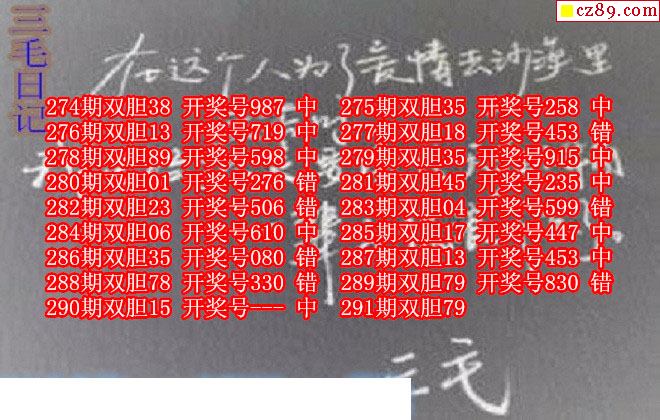 cz89.com
三毛日记
在这个人为了爱情去沙漠里
274期双胆38 开奖号987 中 275期双胆35 开奖号258 中
276期双胆13 开奖号719 中 277期双胆18 开奖号453 错
278期双胆89 开奖号598 中 279期双胆35 开奖号915 中
280期双胆01 开奖号276 错 281期双胆45 开奖号235 中
282期双胆23 开奖号506 错 283期双胆04 开奖号599 错
284期双胆06 开奖号610 中 285期双胆17 开奖号447 中
286期双胆35 开奖号080 错 287期双胆13 开奖号453 中
288期双胆78 开奖号330 错 289期双胆79 开奖号830 错
290期双胆15 开奖号--- 中 291期双胆79
三毛